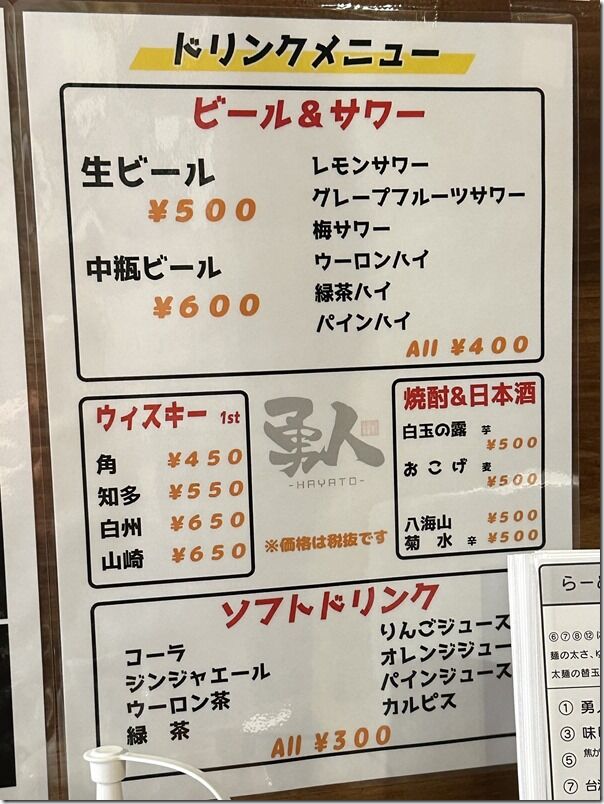 ドリンクメニュー
ビール＆サワー
生ビール
¥500
中瓶ビール
¥600
レモンサワー
グレープフルーツサワー
梅サワー
ウーロンハイ
緑茶ハイ
パインハイ
All ¥400
ウィスキー 1st
角 ¥450
知多 ¥550
白州 ¥650
山崎 ¥650
勇人
-HAYATO-
※価格は税抜です
焼酎&日本酒
白玉の露 芋
¥500
おこげ 麦
¥500
八海山 ¥500
菊水 辛 ¥500
ソフトドリンク
コーラ
ジンジャエール
ウーロン茶
緑茶
りんごジュース
オレンジジュー
パインジュース
カルピス
All ¥300
らーめ
⑥⑦⑧⑫は
麺の太さ、ゆ
太麺の替玉
① 勇人
③ 味
⑤ 焦が
⑦ 台湾